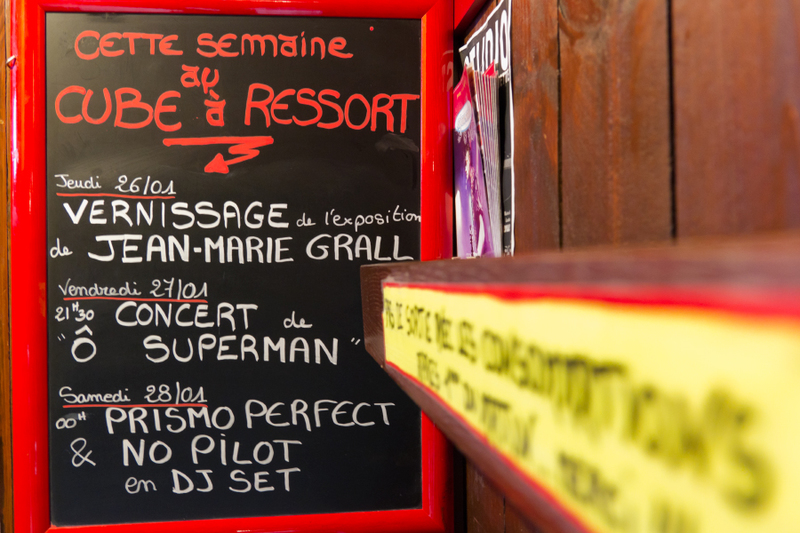 CETTE semaine
au
CUBE à RESSORT
Jeudi 26/01
VERNISSAGE de l'exposition
de JEAN-MARIE GRALL
Vendredi 27/01
21H30 CONCERT de
"Ô SUPERMAN"
Samedi 28/01
00H PRISMO PERFECT
& NO PILOT
en DJ SET
STUDIO
PAS DE SORTIE AVEC LES CONSOMMATIONS
MERCI